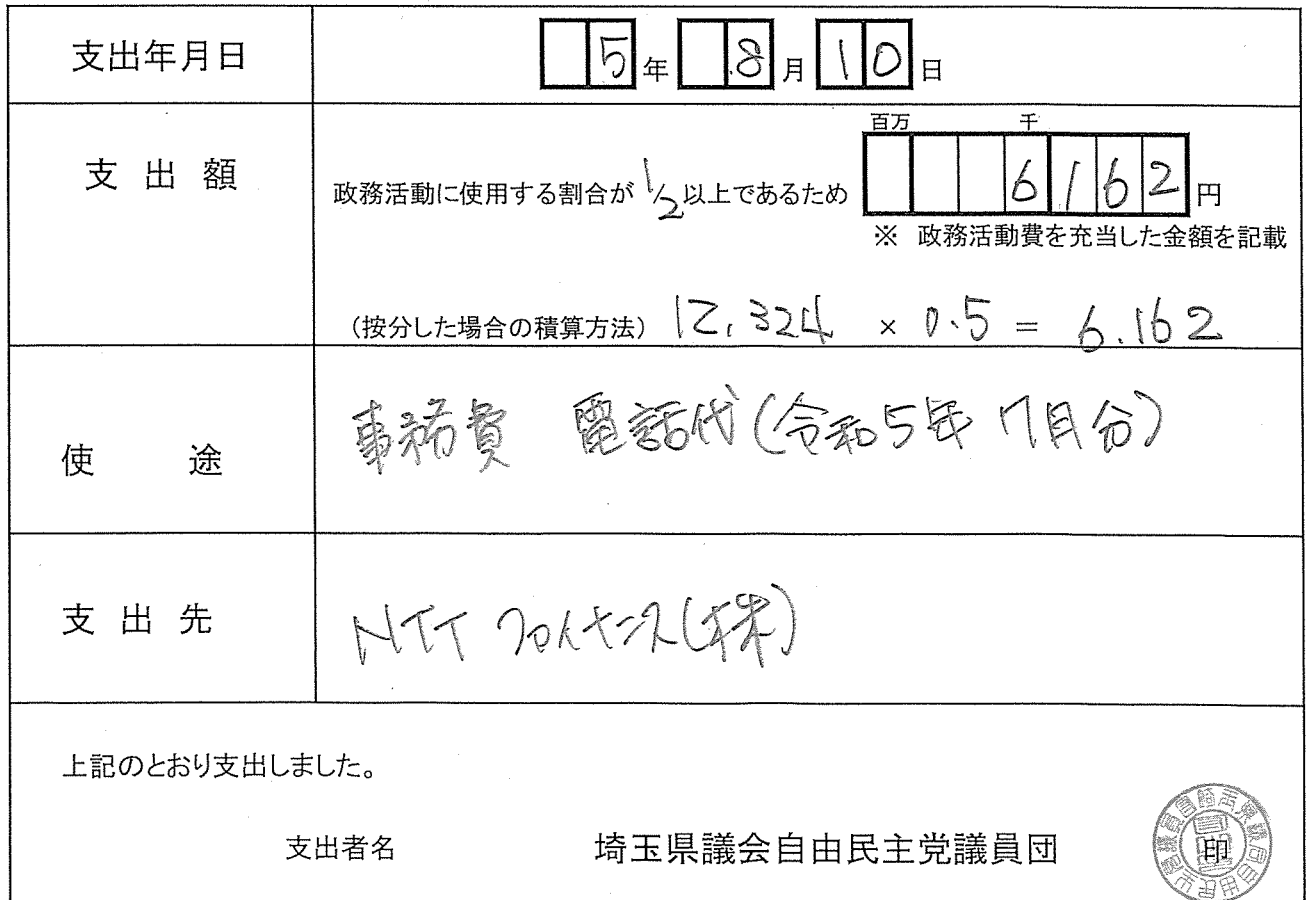 支出年月日
5年 8月10日
支出額
百万 千
政務活動に使用する割合が1/2以上であるため 6162円
※ 政務活動費を充当した金額を記載
(按分した場合の積算方法) 12,324 × 0.5 = 6.162
使途
事務費 電話代(令和5年7月分)
支出先
NTTファイナンス(株)
上記のとおり支出しました。
支出者名 埼玉県議会自由民主党議員団
印